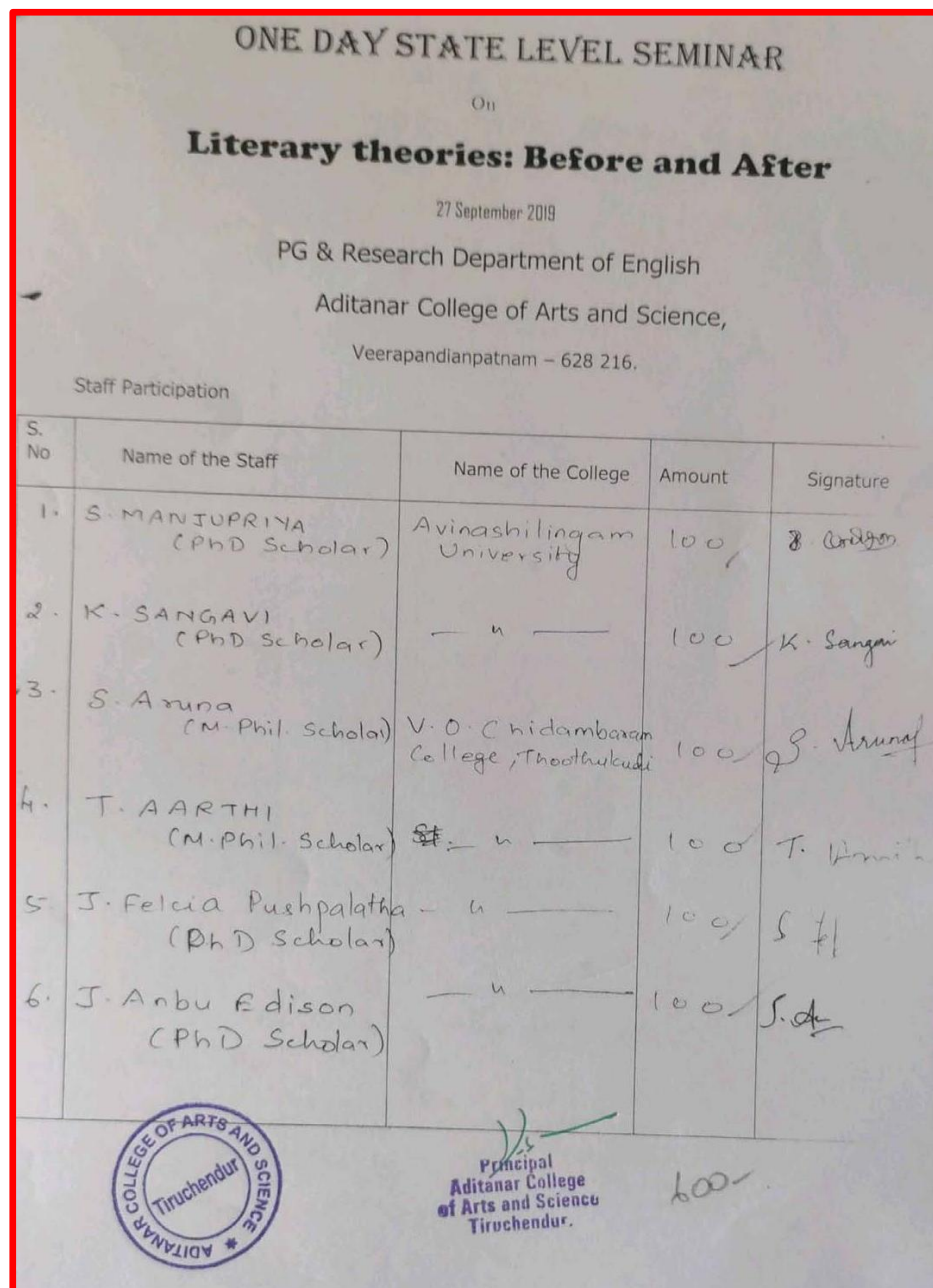 ONE DAY STATE LEVEL SEMINAR
On
Literary theories: Before and After
27 September 2019
PG & Research Department of English
Aditanar College of Arts and Science,
Veerapandianpatnam – 628 216.
Staff Participation
S. No Name of the Staff Name of the College Amount Signature
1. S. MANJUPRIYA Avinashilingam 100/
(PhD Scholar) University
2. K. SANGAVI — " — 100/ K. Sangavi
(PhD Scholar)
3. S. Aruna
(M. Phil. Scholar) V. O. Chidambaram 100/ S. Aruna
College, Thoothukudi
4. T. AARTHI
(M. Phil. Scholar) — " — 100/ T.
5 J. Felcia Pushpalatha — " — 100/
(PhD Scholar)
6. J. Anbu Edison — " — 100/
(PhD Scholar)
ADITANAR COLLEGE OF ARTS AND SCIENCE
Tiruchendur
Principal
Aditanar College
of Arts and Science
Tiruchendur.
600-